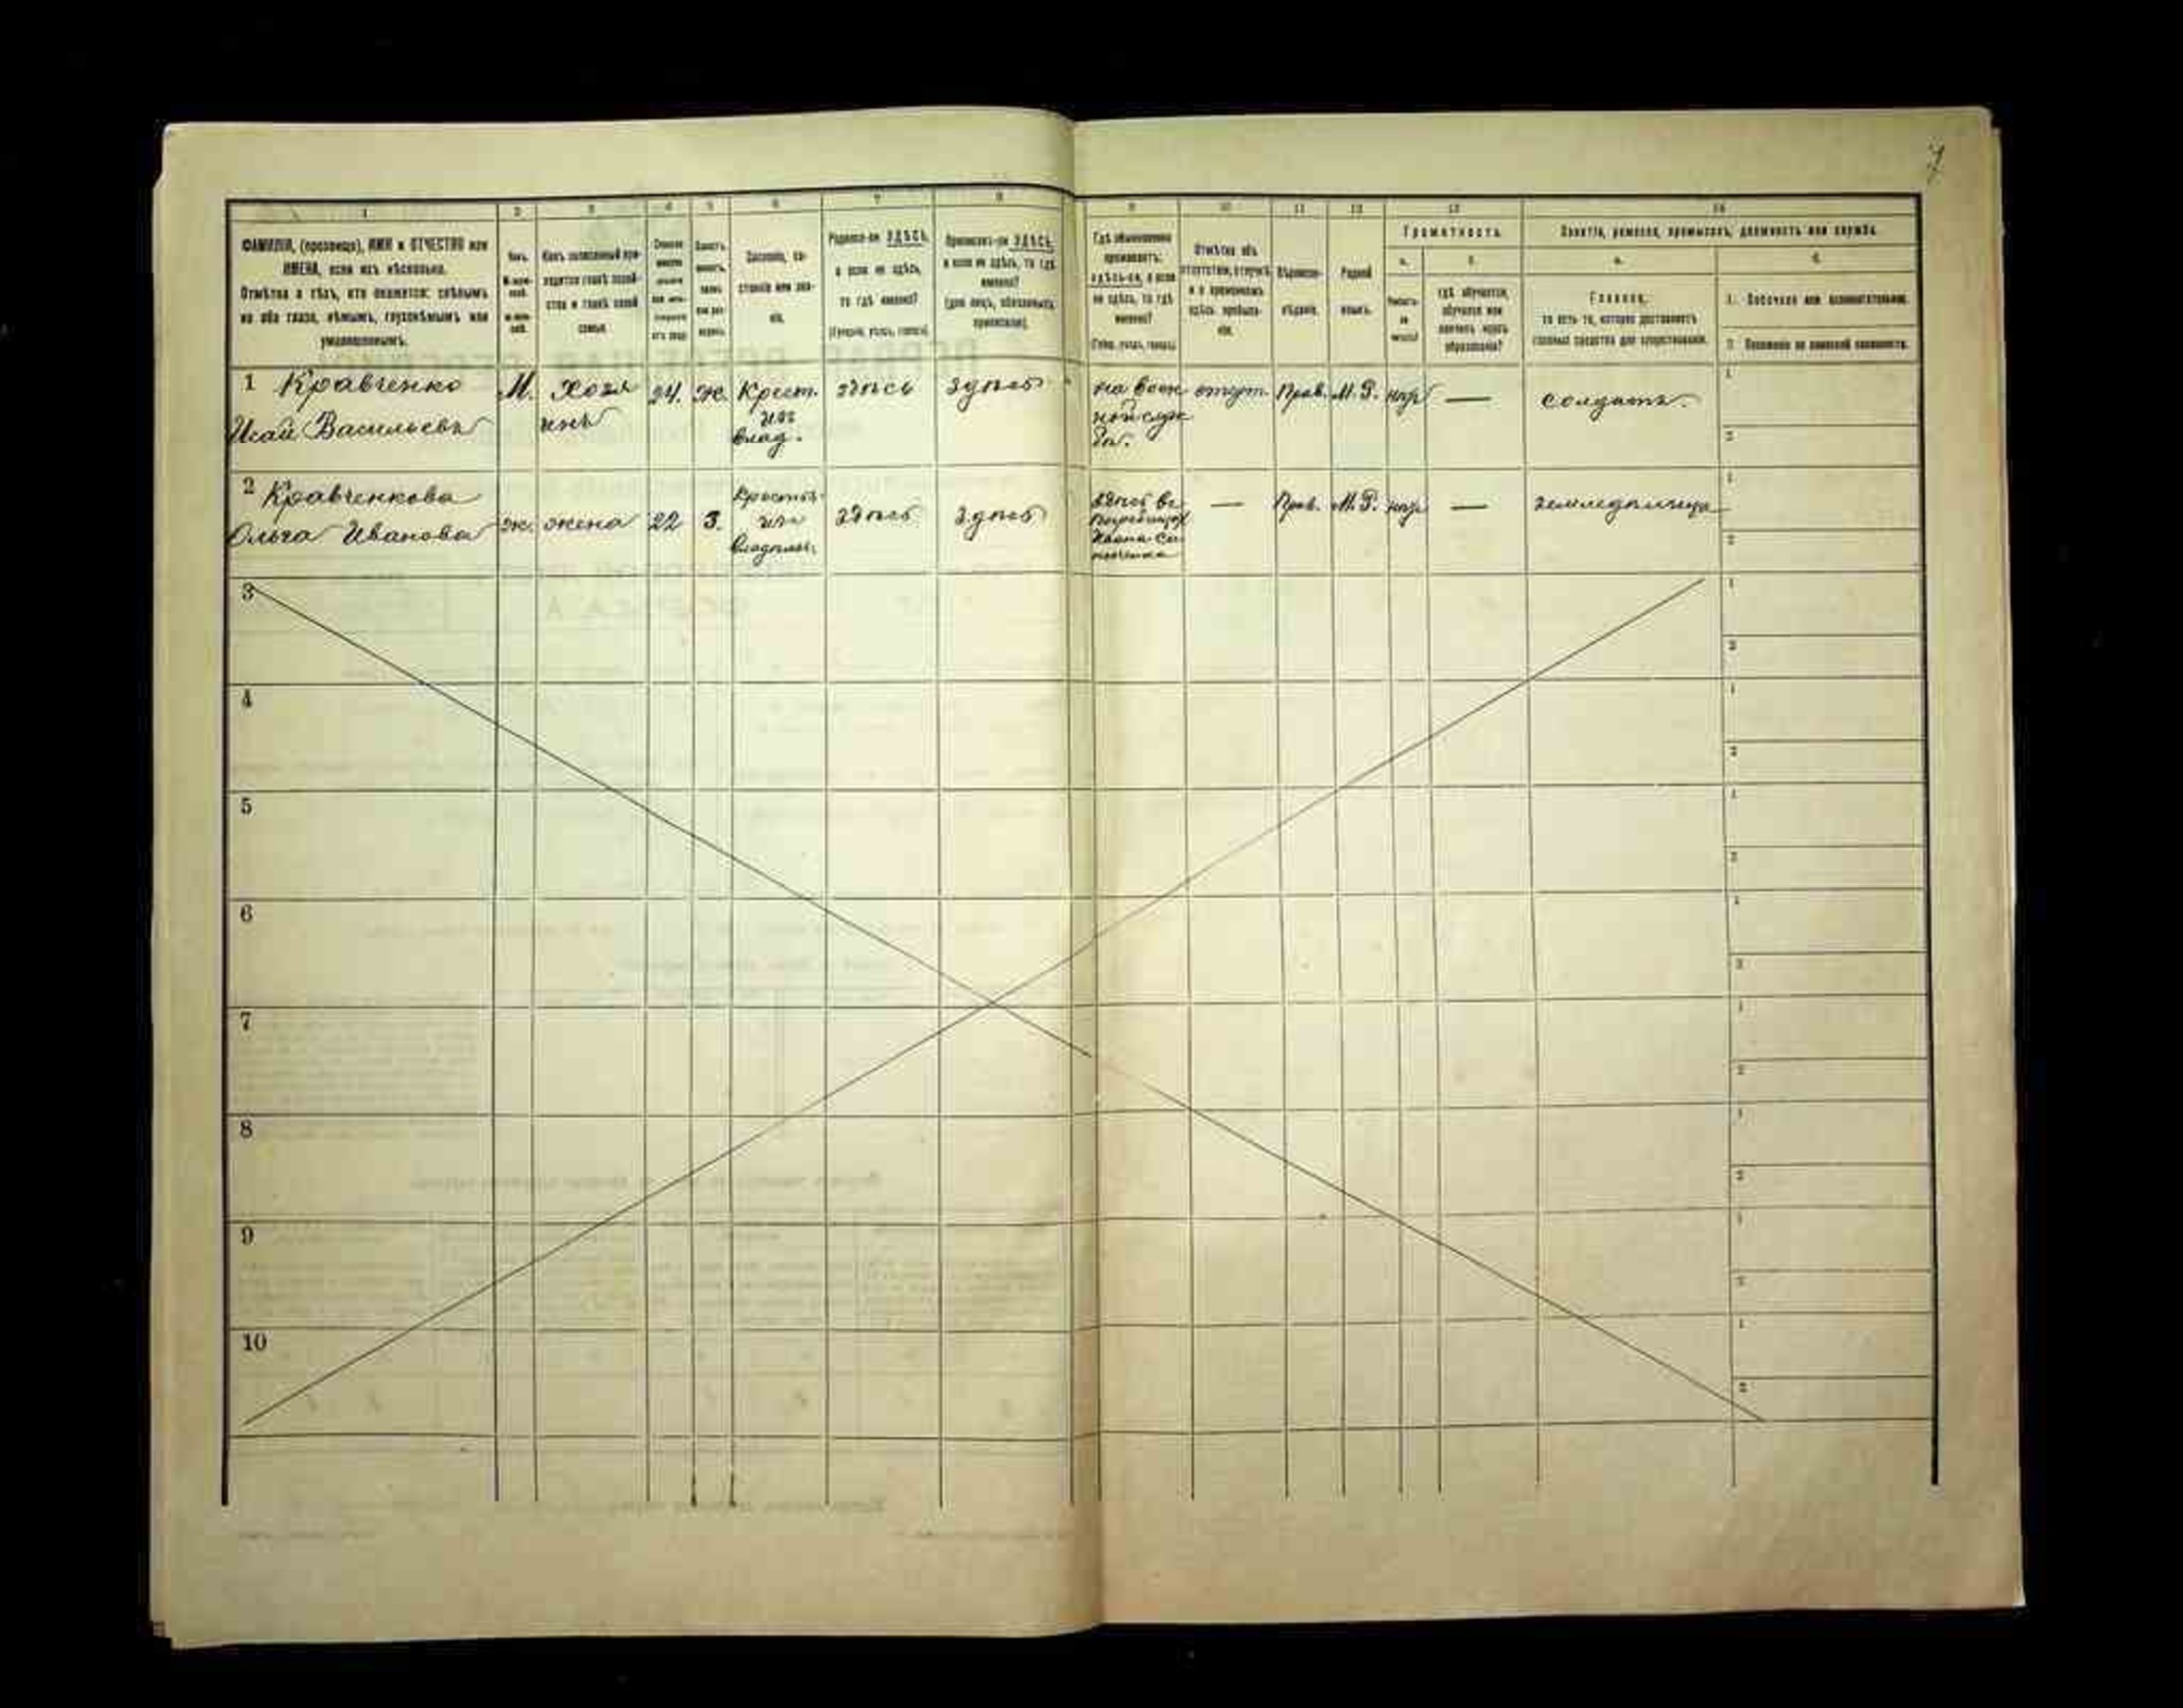 7
1 2 3 4 5 6 7 8 9 10 11 12 13 14
ФАМИЛІЯ, (прозвище), ИМЯ и ОТЧЕСТВО или
ИМЕНА, если ихъ нѣсколько.
Отмѣтка о тѣхъ, кто окажется: слѣпымъ
на оба глаза, нѣмымъ, глухонѣмымъ или
умалишеннымъ.
Полъ.
Какъ записанный при-
ходится главѣ хозяй-
ства и главѣ своей
семьи.
Сословіе, со-
стояніе или зва-
ніе.
Родился-ли ЗДѢСЬ,
а если не здѣсь,
то гдѣ именно?
(Губернія, уѣздъ, городъ).
Приписанъ-ли ЗДѢСЬ,
а если не здѣсь, то гдѣ
именно?
(для лицъ, обязанныхъ
припискою).
Гдѣ обыкновенно
проживаетъ:
здѣсь-ли, а если
не здѣсь, то гдѣ
именно?
(Губер., уѣздъ, городъ).
Отмѣтка объ
отсутствіи, отлучкѣ
и о временномъ
здѣсь пребыва-
ніи.
Вѣроиспо-
вѣданіе.
Родной
языкъ.
Грамотность.
а. б.
Умѣетъ-
ли
читать?
гдѣ обучается,
обучался или
кончилъ курсъ
образованія?
Занятіе, ремесло, промыселъ, должность или служба.
а. б.
Главное,
то есть то, которое доставляетъ
главныя средства для существованія.
1. Побочное или вспомогательное.
2. Положеніе по воинской повинности.
1 Кравченко
Исай Васильевъ
М.
Хозя
инъ
24.
Ж.
Крест.
изъ
влад.
здѣсь
здѣсь
на воен
ной служ
бѣ.
отсут.
Прав.
М. Р.
нѣтъ
—
солдатъ.
1
2
2 Кравченкова
Ольга Иванова
ж.
жена
22
З.
изъ
здѣсь
здѣсь
—
Прав.
М. Р.
нѣтъ
—
1
2
3
1
2
4
1
2
5
1
2
6
1
2
7
1
2
8
1
2
9
1
2
10
1
2